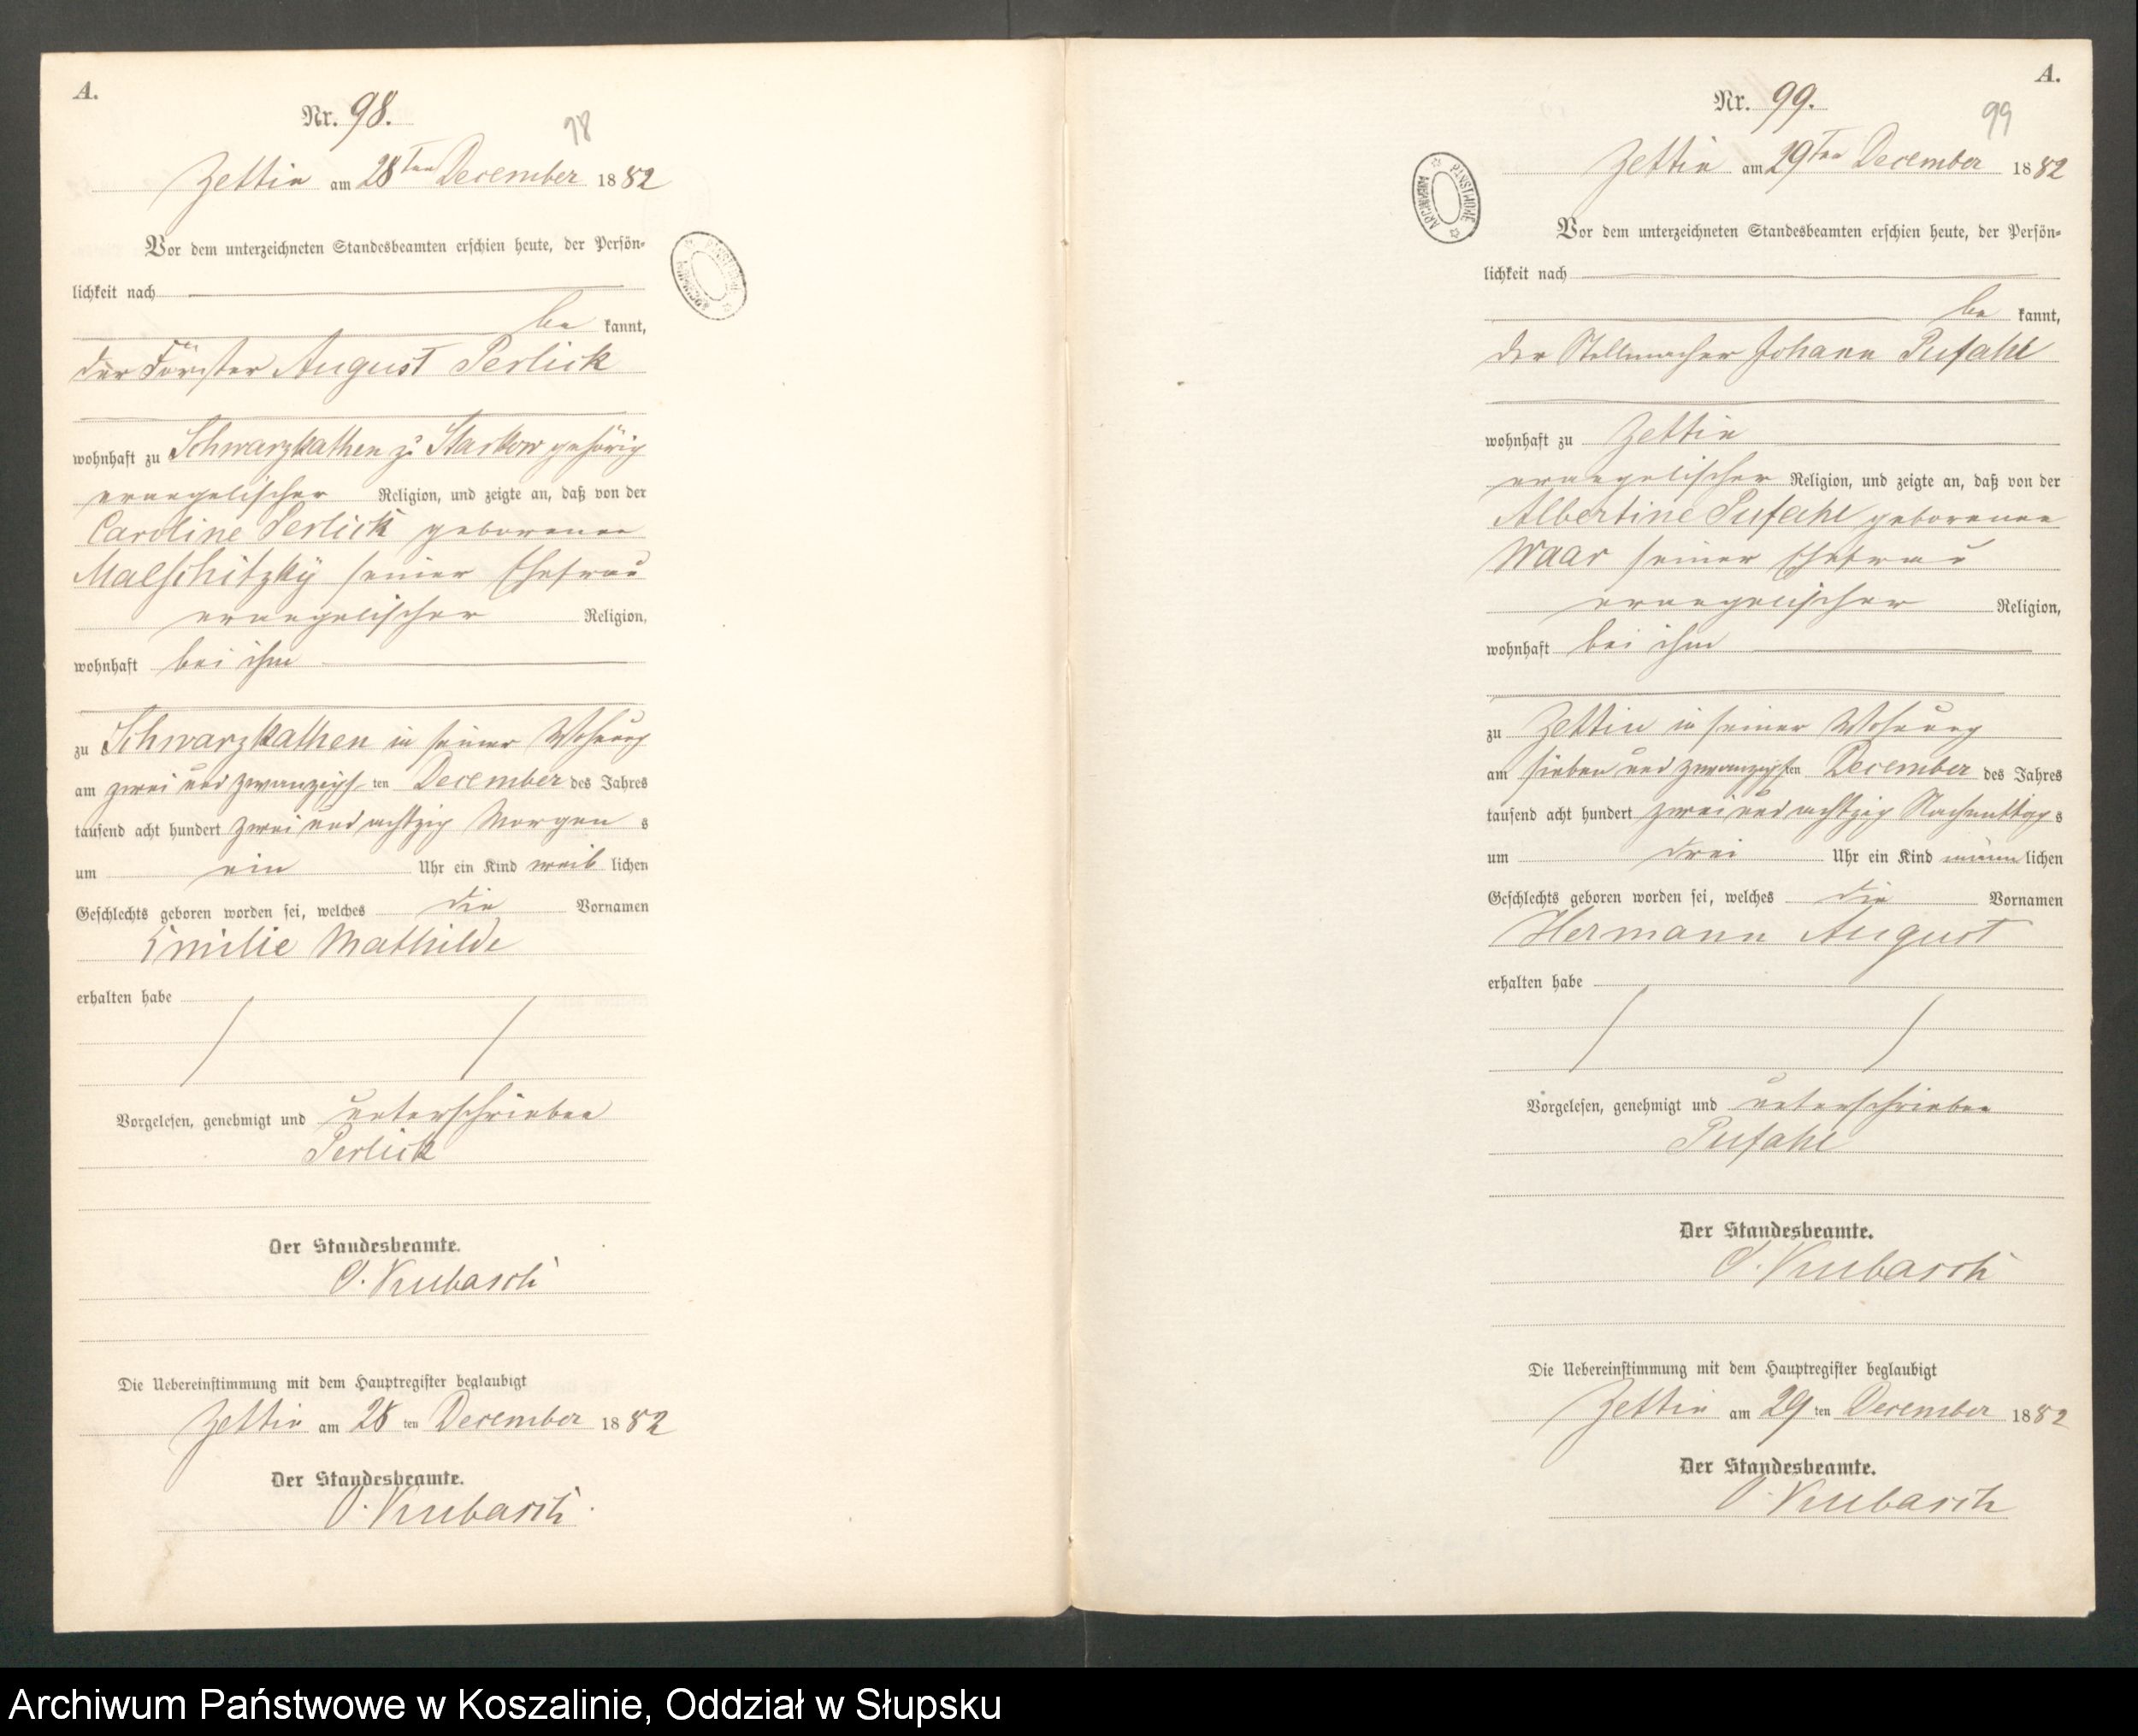 A.
Nr. 98.
98
Zettin am 28ten December 1882
Vor dem unterzeichneten Standesbeamten erschien heute, der Persön-
lichkeit nach
be kannt,
der Förster August Perlick
wohnhaft zu Schwarzkathen z. Starkow gehörig
evangelischer Religion, und zeigte an, daß von der
Caroline Perlick geborenen
Malschitzky seiner Ehefrau
evangelischer Religion,
wohnhaft bei ihm
zu Schwarzkathen in seiner Wohnung
am zwei und zwanzigsten December des Jahres
tausend acht hundert zwei und achtzig Morgens
um ein Uhr ein Kind weiblichen
Geschlechts geboren worden sei, welches die Vornamen
Emilie Mathilde
erhalten habe
Vorgelesen, genehmigt und unterschrieben
Perlick
Der Standesbeamte.
O. Kubasch
Die Uebereinstimmung mit dem Hauptregister beglaubigt
Zettin am 28 ten December 1882
Der Standesbeamte.
O. Kubasch.
A.
Nr. 99.
99
ARCHIWUM PAŃSTWOWE
Zettin am 29ten December 1882
Vor dem unterzeichneten Standesbeamten erschien heute, der Persön-
lichkeit nach
be kannt,
der Stellmacher Johann Pufahl
wohnhaft zu Zettin
evangelischer Religion, und zeigte an, daß von der
Albertine Pufahl geborenen
Waar seiner Ehefrau
evangelischer Religion,
wohnhaft bei ihm
zu Zettin in seiner Wohnung
am sieben und zwanzigsten December des Jahres
tausend acht hundert zwei und achtzig Nachmittags
um drei Uhr ein Kind männlichen
Geschlechts geboren worden sei, welches die Vornamen
Hermann August
erhalten habe
Vorgelesen, genehmigt und unterschrieben
Pufahl
Der Standesbeamte.
O. Kubasch
Die Uebereinstimmung mit dem Hauptregister beglaubigt
Zettin am 29 ten December 1882
Der Standesbeamte.
O. Kubasch
Archiwum Państwowe w Koszalinie, Oddział w Słupsku